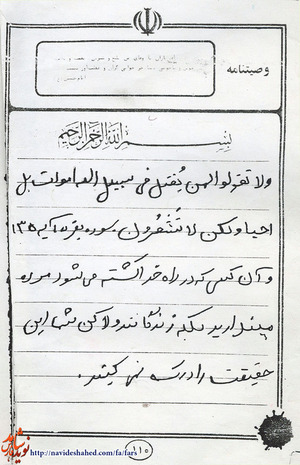 وصیتنامه
بسم الله الرحمن الرحیم
ولا تقولوا لمن یُقتل فی سبیل الله اموات بل
احیا ولکن لا تَشعُرُون. سوره بقره آیه ۱۳۵
و آن کسی که در راه خدا کشته می‌شود مرده
مپندارید بلکه زندگانند ولاکن شما این
حقیقت را درک نمی کنید.
۱۱۵
نوید شاهد
http://navideshahed.com/fa/fars